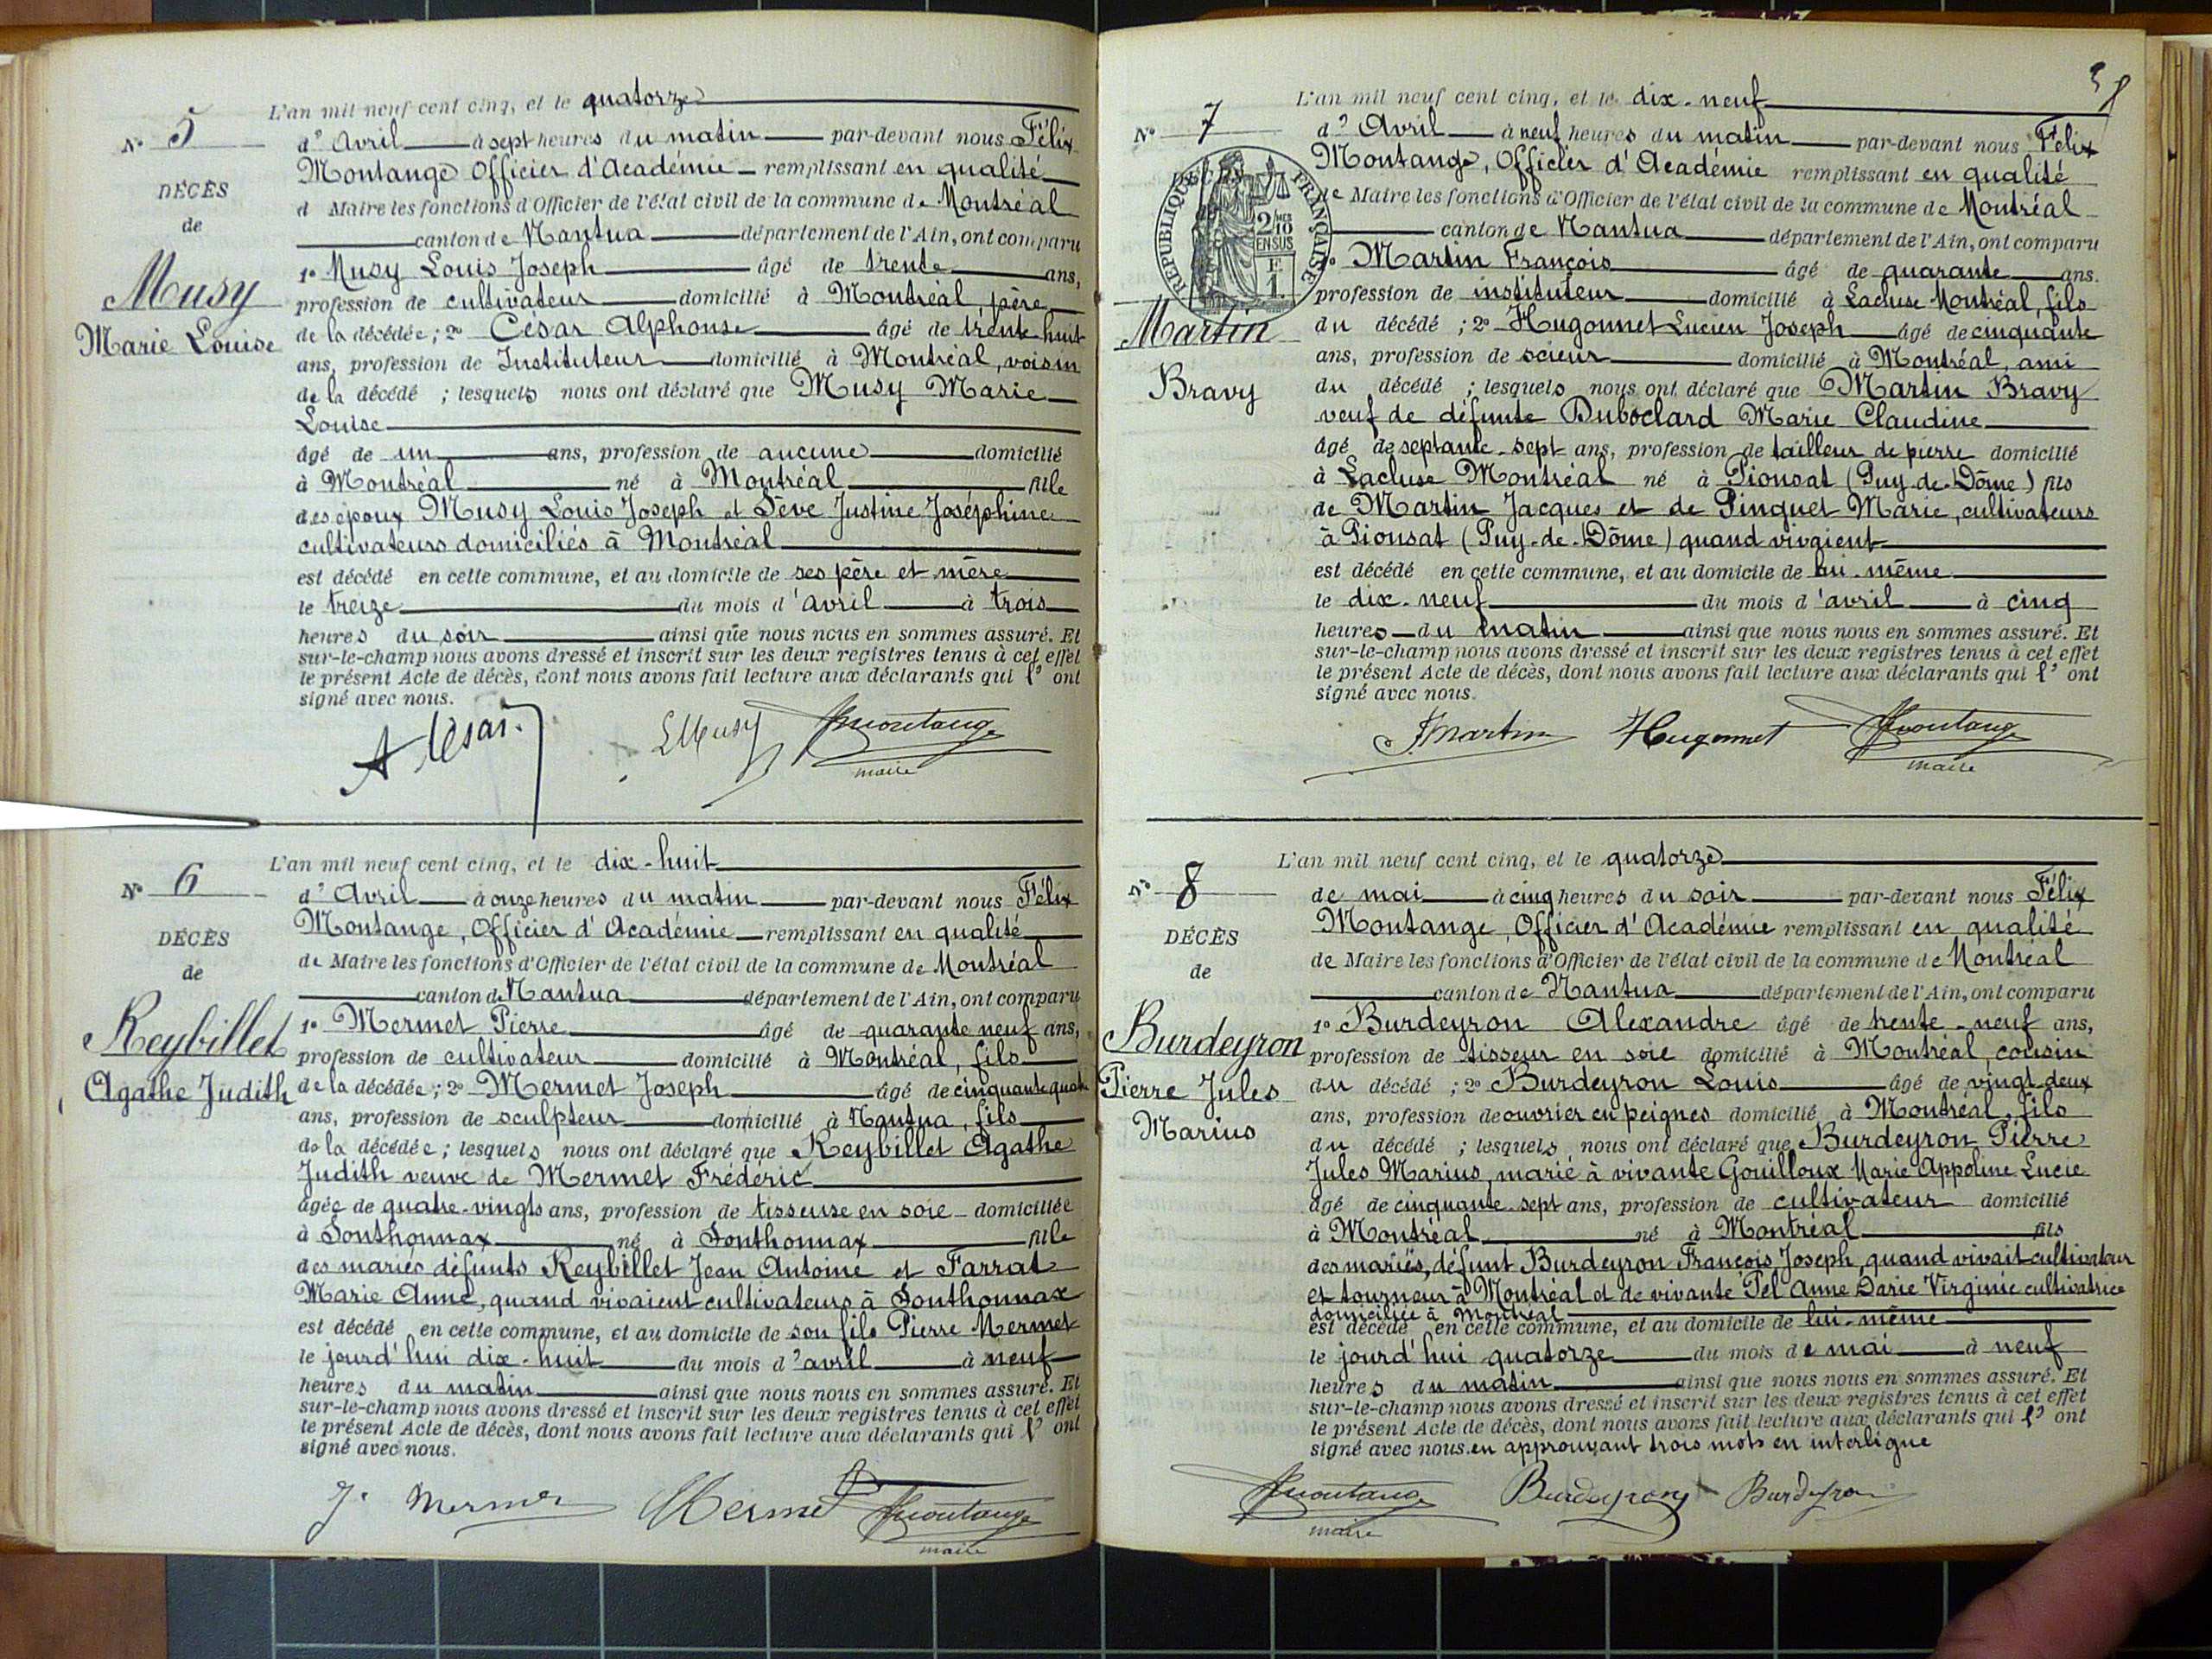 L'an mil neuf cent cinq, et le quatorze
N° 5
d' Avril à sept heures du matin par-devant nous Félix
Montange Officier d'Académie remplissant en qualité
d Maire les fonctions d'Officier de l'état civil de la commune de Montréal
DÉCÈS
de
canton de Nantua département de l'Ain, ont comparu
1° Musy Louis Joseph âgé de trente ans,
Musy
profession de cultivateur domicilié à Montréal, père
Marie Louise
de la décédée ; 2° César Alphonse âgé de trente huit
ans, profession de Instituteur domicilié à Montréal, voisin
de la décédé ; lesquels nous ont déclaré que Musy Marie
Louise
âgé de un ans, profession de aucune domicilié
à Montréal né à Montréal fille
des époux Musy Louis Joseph et Sève Justine Joséphine
cultivateurs domiciliés à Montréal
est décédé en cette commune, et au domicile de ses père et mère
le treize du mois d'avril à trois
heures du soir ainsi que nous nous en sommes assuré. Et
sur-le-champ nous avons dressé et inscrit sur les deux registres tenus à cet effet
le présent Acte de décès, dont nous avons fait lecture aux déclarants qui l' ont
signé avec nous.
A César. L Musy Fmontange
maire
L'an mil neuf cent cinq, et le dix-huit
N° 6
d' Avril à onze heures du matin par-devant nous Félix
Montange, Officier d'Académie remplissant en qualité
DÉCÈS
de
de Maire les fonctions d'Officier de l'état civil de la commune de Montréal
canton de Nantua département de l'Ain, ont comparu
1° Mermet Pierre âgé de quarante neuf ans,
Reybillet
profession de cultivateur domicilié à Montréal, fils
Agathe Judith
de la décédée ; 2° Mermet Joseph âgé de cinquante quatre
ans, profession de sculpteur domicilié à Nantua, fils
de la décédée ; lesquels nous ont déclaré que Reybillet Agathe
Judith veuve de Mermet Frédéric
âgée de quatre-vingts ans, profession de tisseuse en soie domiciliée
à Sonthonnax né à Sonthonnax fille
des mariés défunts Reybillet Jean Antoine et Farrat
Marie Anne, quand vivaient cultivateurs à Sonthonnax
est décédé en cette commune, et au domicile de son fils Pierre Mermet
le jourd'hui dix-huit du mois d'avril à neuf
heures du matin ainsi que nous nous en sommes assuré. Et
sur-le-champ nous avons dressé et inscrit sur les deux registres tenus à cet effet
le présent Acte de décès, dont nous avons fait lecture aux déclarants qui l' ont
signé avec nous.
J. Mermet Mermet Fmontange
maire
38
L'an mil neuf cent cinq, et le dix-neuf
N° 7
d' Avril à neuf heures du matin par-devant nous Félix
Montange, Officier d'Académie remplissant en qualité
de Maire les fonctions d'Officier de l'état civil de la commune de Montréal
RÉPUBLIQUE FRANÇAISE
2/10
EN SUS
F
1.
canton de Nantua département de l'Ain, ont comparu
1° Martin François âgé de quarante ans.
profession de instituteur domicilié à Lacluse Montréal, fils
Martin
Bravy
du décédé ; 2° Hugonnet Lucien Joseph âgé de cinquante
ans, profession de scieur domicilié à Montréal, ami
du décédé ; lesquels nous ont déclaré que Martin Bravy
veuf de défunte Duboclard Marie Claudine
âgé de septante-sept ans, profession de tailleur de pierre domicilié
à Lacluse Montréal né à Pionsat (Puy-de-Dôme) fils
de Martin Jacques et de Pinguet Marie, cultivateurs
à Pionsat (Puy-de-Dôme) quand vivaient
est décédé en cette commune, et au domicile de lui-même
le dix-neuf du mois d'avril à cinq
heures du matin ainsi que nous nous en sommes assuré. Et
sur-le-champ nous avons dressé et inscrit sur les deux registres tenus à cet effet
le présent Acte de décès, dont nous avons fait lecture aux déclarants qui l' ont
signé avec nous.
F Martin Hugonnet Fmontange
maire
L'an mil neuf cent cinq, et le quatorze
N° 8
de mai à cinq heures du soir par-devant nous Félix
Montange, Officier d'Académie remplissant en qualité
DÉCÈS
de
de Maire les fonctions d'Officier de l'état civil de la commune de Montréal
canton de Nantua département de l'Ain, ont comparu
1° Burdeyron Alexandre âgé de trente-neuf ans,
Burdeyron
Pierre Jules
Marius
profession de tisseur en soie domicilié à Montréal, cousin
du décédé ; 2° Burdeyron Louis âgé de vingt-deux
ans, profession de ouvrier en peignes domicilié à Montréal, fils
du décédé ; lesquels nous ont déclaré que Burdeyron Pierre
Jules Marius, marié à vivante Gouilloux Marie Appoline Lucie
âgé de cinquante-sept ans, profession de cultivateur domicilié
à Montréal né à Montréal fils
des mariés, défunt Burdeyron François Joseph, quand vivait cultivateur
et tourneur à Montréal et de vivante Pel Anne Darie Virginie cultivatrice
domiciliée à Montréal
est décédé en cette commune, et au domicile de lui-même
le jourd'hui quatorze du mois de mai à neuf
heures du matin ainsi que nous nous en sommes assuré. Et
sur-le-champ nous avons dressé et inscrit sur les deux registres tenus à cet effet
le présent Acte de décès, dont nous avons fait lecture aux déclarants qui l' ont
signé avec nous. en approuvant trois mots en interligne
Fmontange Burdeyron Burdeyron
maire